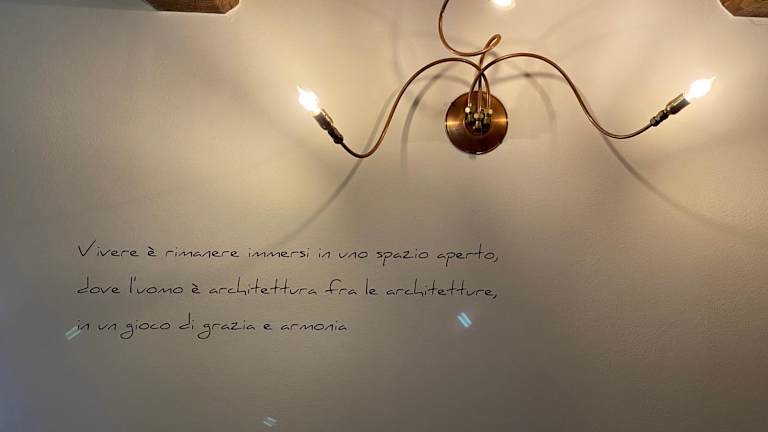 Vivere è rimanere immersi in uno spazio aperto,
dove l'uomo è architettura fra le architetture,
in un gioco di grazia e armonia